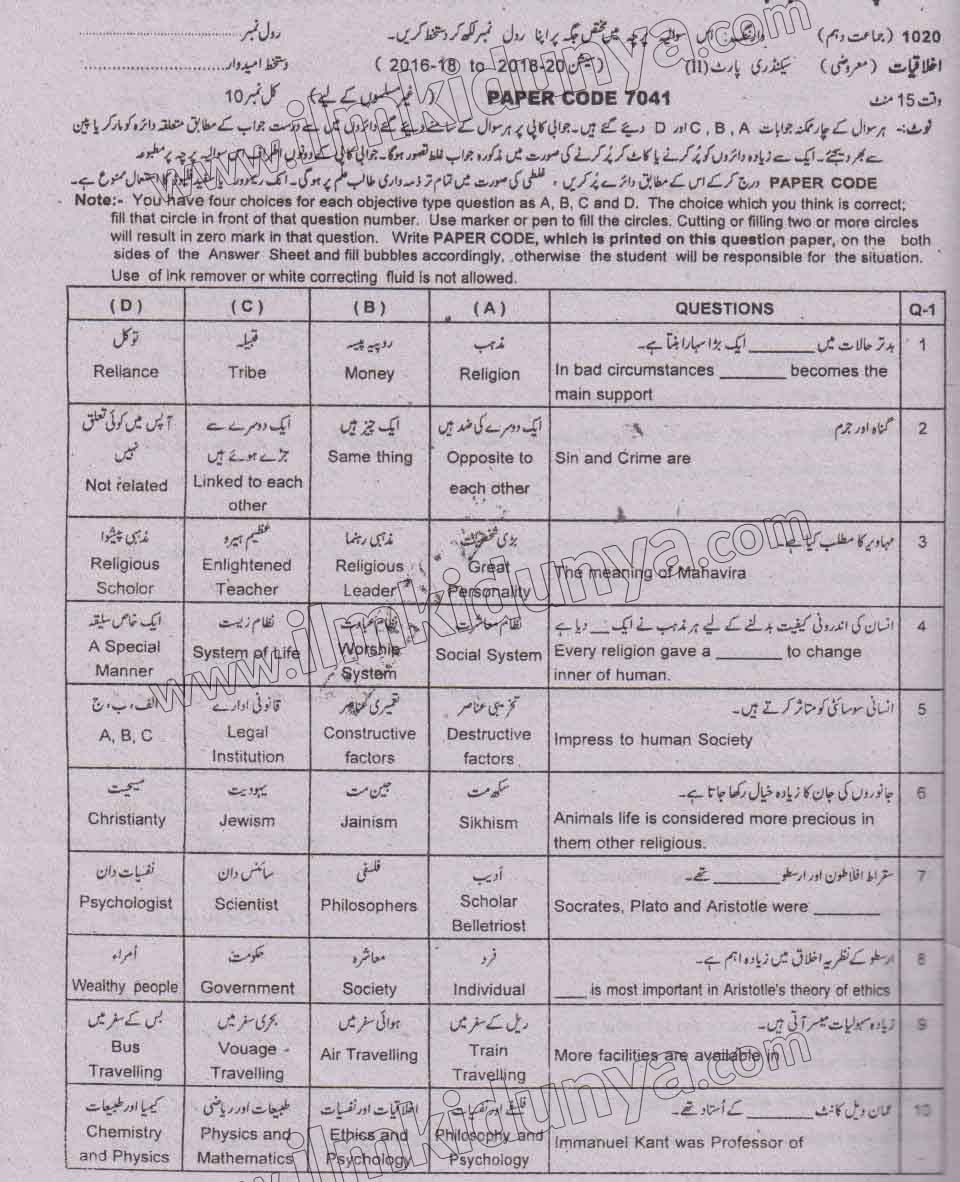 1020 (جماعت دہم) وارننگ: اس سوالیہ پرچہ میں مختص جگہ پر اپنا رول نمبر لکھ کر دستخط کریں۔ رول نمبر
اخلاقیات (معروضی) سیکنڈری پارٹ (II) (سیشن 20-2018 to 2016-18) دستخط امیدوار
وقت 15 منٹ PAPER CODE 7041 (غیر مسلموں کے لیے) کل نمبر 10
نوٹ:- ہر سوال کے چار ممکنہ جوابات C, B, A اور D دیئے گئے ہیں۔ جوابی کاپی پر ہر سوال کے سامنے دیئے گئے دائروں میں سے درست جواب کے مطابق متعلقہ دائرہ کو مارکر یا پین
سے بھر دیجئے۔ ایک سے زیادہ دائروں کو پُر کرنے یا کاٹ کر پُر کرنے کی صورت میں مذکورہ جواب غلط تصور ہوگا۔ جوابی کاپی کے دونوں اطراف اس سوالیہ پرچہ پر مطبوعہ
PAPER CODE درج کر کے اس کے مطابق دائرے پُر کریں، غلطی کی صورت میں تمام تر ذمہ داری طالب علم پر ہوگی۔ انک ریموور یا سفید فلوئڈ کا استعمال ممنوع ہے۔
Note:- You have four choices for each objective type question as A, B, C and D. The choice which you think is correct;
fill that circle in front of that question number. Use marker or pen to fill the circles. Cutting or filling two or more circles
will result in zero mark in that question. Write PAPER CODE, which is printed on this question paper, on the both
sides of the Answer Sheet and fill bubbles accordingly, otherwise the student will be responsible for the situation.
Use of ink remover or white correcting fluid is not allowed.
( D ) ( C ) ( B ) ( A ) QUESTIONS Q-1
توکل قبیلہ روپیہ پیسہ مذہب بدتر حالات میں ________ ایک بڑا سہارا بنتا ہے۔ 1
Reliance Tribe Money Religion In bad circumstances _______ becomes the
main support
آپس میں کوئی تعلق ایک دوسرے سے ایک چیز ہیں ایک دوسرے کی ضد ہیں گناہ اور جرم 2
نہیں جڑے ہوئے ہیں Same thing Opposite to Sin and Crime are
Not related Linked to each each other
other
مذہبی پیشوا عظیم ہیرہ مذہبی رہنما بڑی شخصیت مہاویر کا مطلب کیا ہے۔ 3
Religious Enlightened Religious Great The meaning of Mahavira
Scholor Teacher Leader Personality
ایک خاص سلیقہ نظام زیست نظام عبادت نظام معاشرت انسان کی اندرونی کیفیت بدلنے کے لیے ہر مذہب نے ایک __ دیا ہے 4
A Special System of Life Worship Social System Every religion gave a _______ to change
Manner System inner of human.
الف، ب، ج قانونی ادارے تعمیری عناصر تخریبی عناصر انسانی سوسائٹی کو متاثر کرتے ہیں۔ 5
A, B, C Legal Constructive Destructive Impress to human Society
Institution factors factors
مسیحیت یہودیت جین مت سکھ مت جانوروں کی جان کا زیادہ خیال رکھا جاتا ہے۔ 6
Christianty Jewism Jainism Sikhism Animals life is considered more precious in
them other religious.
نفسیات دان سائنس دان فلسفی ادیب سقراط افلاطون اور ارسطو ________ تھے۔ 7
Psychologist Scientist Philosophers Scholar Socrates, Plato and Aristotle were _______
Belletriost
اُمراء حکومت معاشرہ فرد ارسطو کے نظریہ اخلاق میں زیادہ اہم ہے۔ 8
Wealthy people Government Society Individual ____ is most important in Aristotle's theory of ethics
بس کے سفر میں بحری سفر میں ہوائی سفر میں ریل کے سفر میں زیادہ سہولیات میسر آتی ہیں۔ 9
Bus Vouage - Air Travelling Train More facilities are available in
Travelling Travelling Travelling
کیمیا اور طبیعات طبیعات اور ریاضی اخلاقیات اور نفسیات فلسفہ اور نفسیات عمان ویل کانٹ ________ کے اُستاد تھے۔ 10
Chemistry Physics and Ethics and Philosophy and Immanuel Kant was Professor of
and Physics Mathematics Psychology Psychology
www.ilmkidunya.com
www.ilmkidunya.com
www.ilmkidunya.com